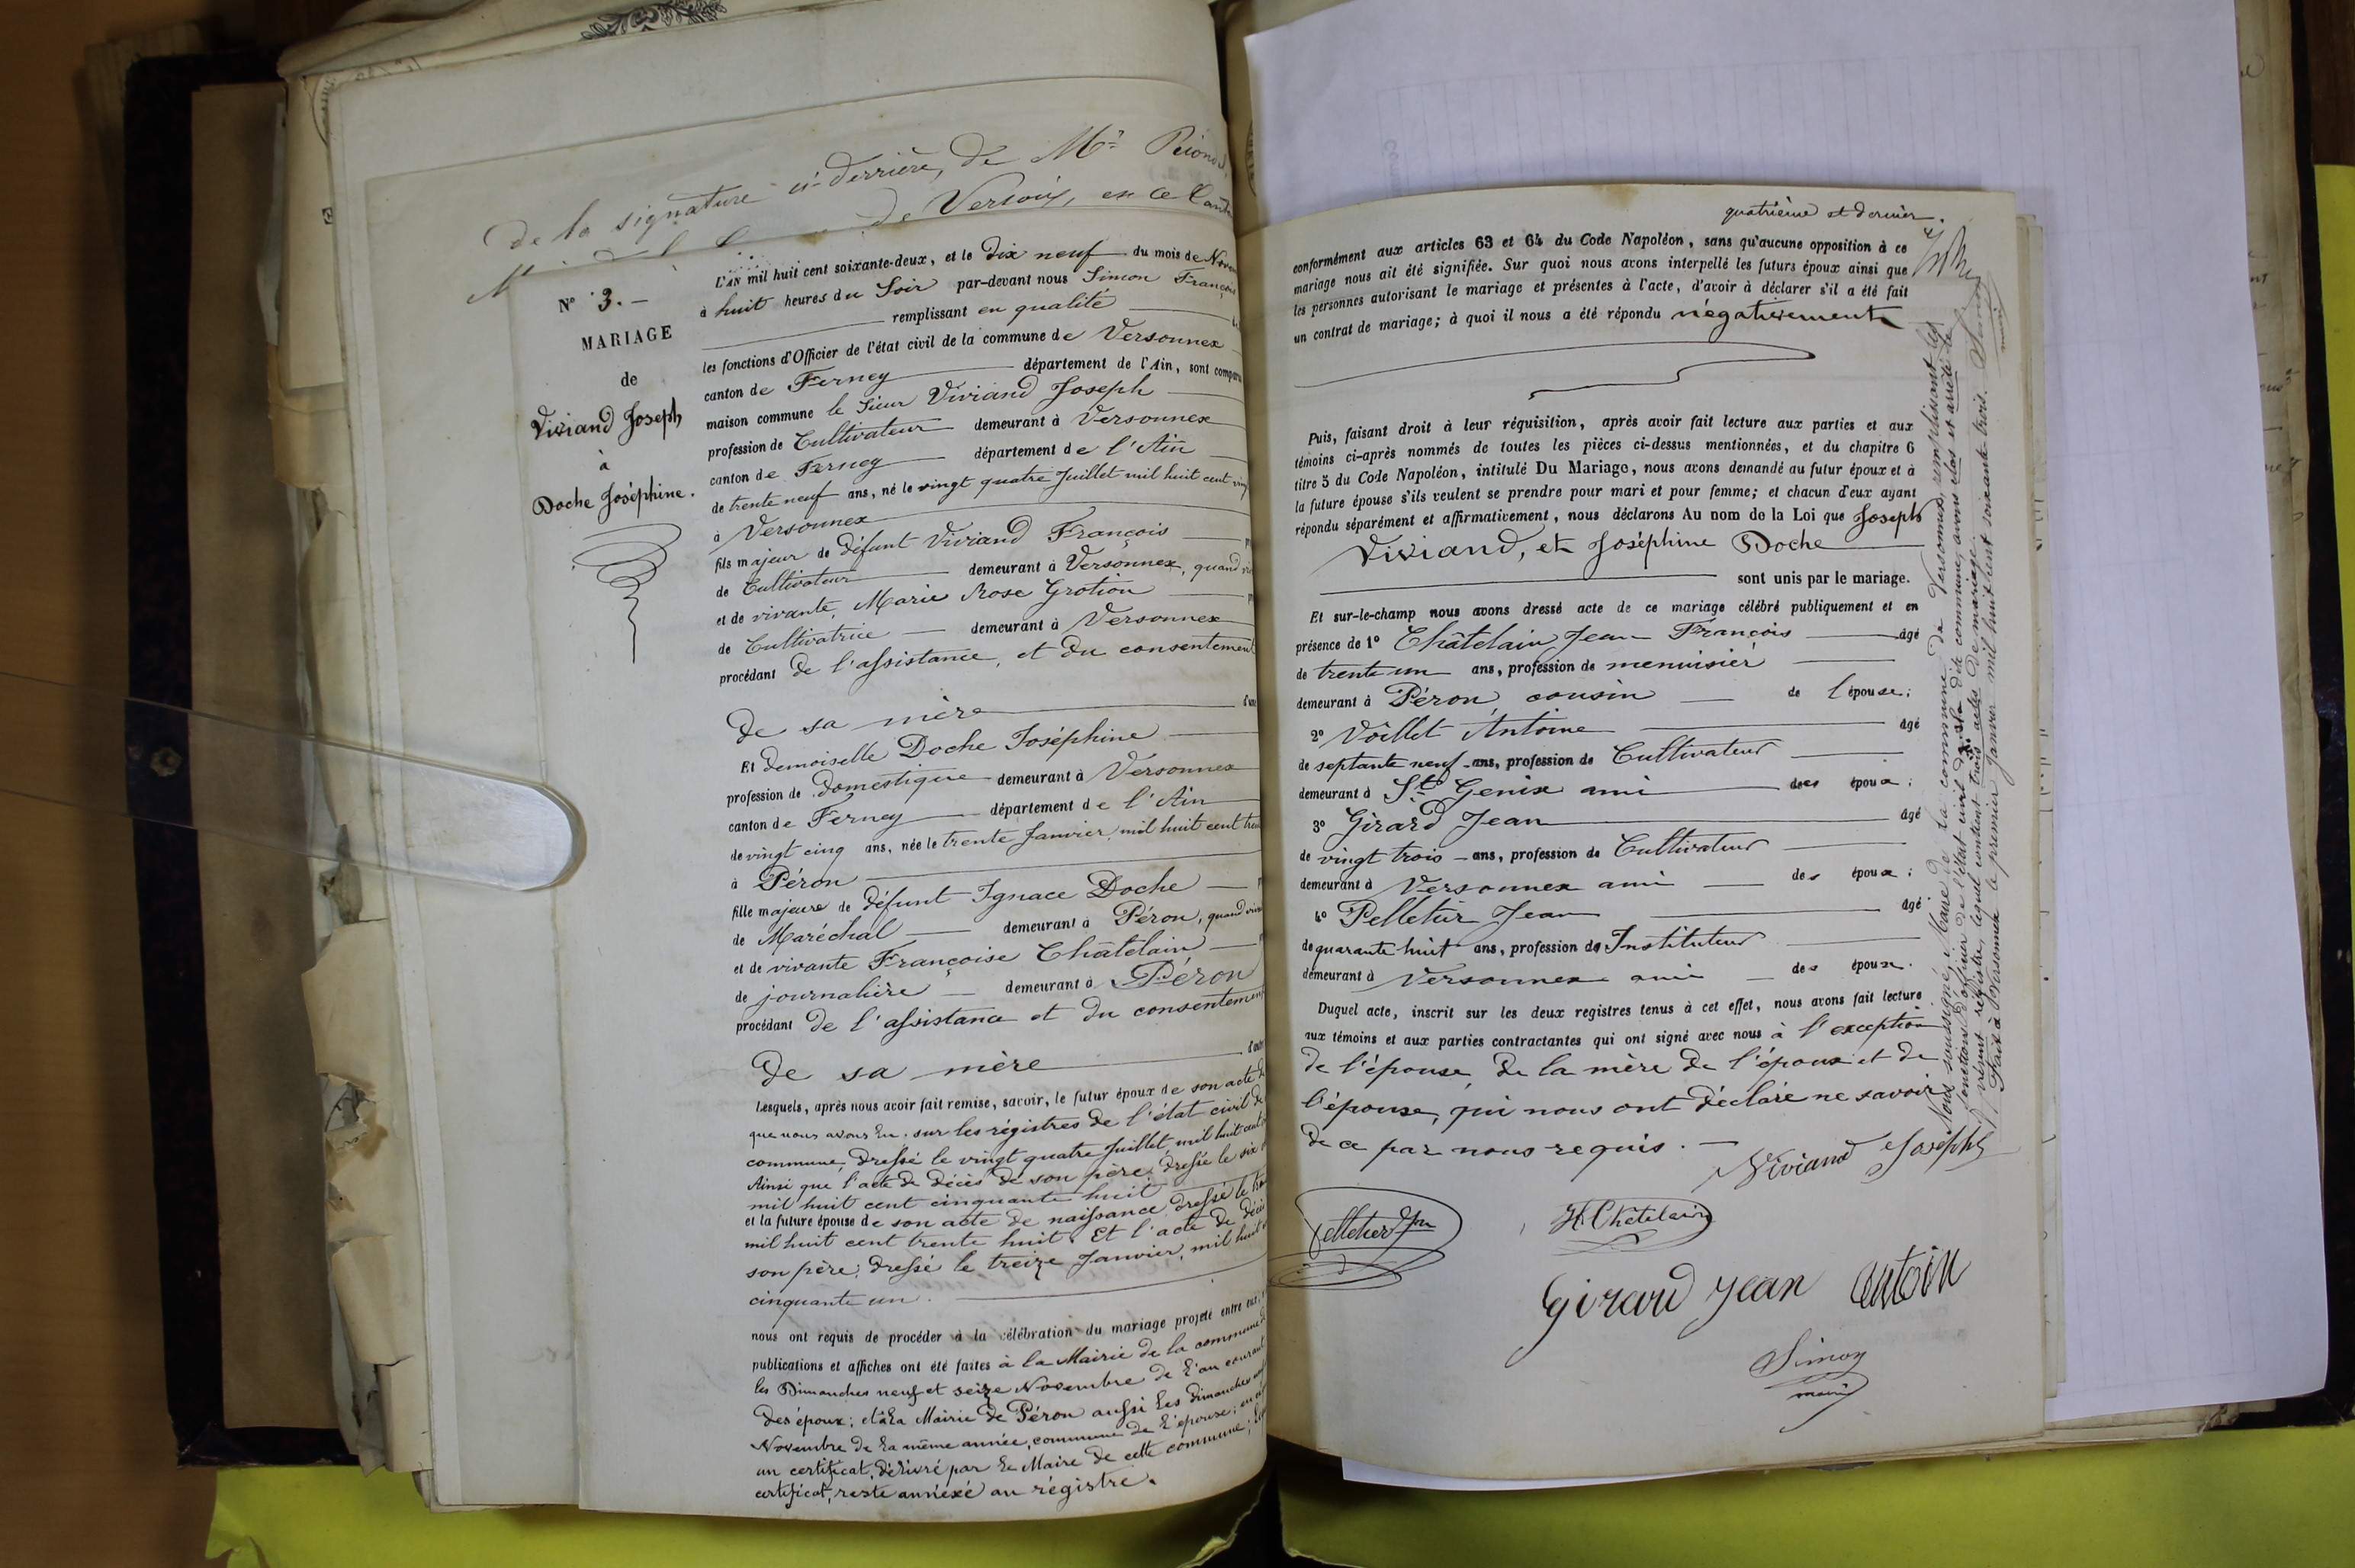 De la signature ci-derrière, de Mr
de Versoix, en ce Cant
N° 3. —
MARIAGE
de
Viviand Joseph
à
Doche Joséphine.
L'AN mil huit cent soixante-deux, et le dix neuf du mois de Nov
à huit heures du Soir par-devant nous Simon François
remplissant en qualité
les fonctions d'Officier de l'état civil de la commune de Versonnex
canton de Ferney département de l'Ain, sont compar
maison commune le Sieur Viviand Joseph
profession de Cultivateur demeurant à Versonnex
canton de Ferney département de l'Ain
de trente neuf ans, né le vingt quatre Juillet mil huit cent ving
à Versonnex
fils majeur de défunt Viviand François
de Cultivateur demeurant à Versonnex, quand viv
et de vivante, Marie Rose Grotion
de Cultivatrice demeurant à Versonnex
procédant de l'assistance, et du consentement
De sa mère
Et demoiselle Doche Joséphine
profession de domestique demeurant à Versonnex
canton de Ferney département de l'Ain
de vingt cinq ans, née le trente Janvier mil huit cent tren
à Péron
fille majeure de défunt Ignace Doche
de Maréchal demeurant à Péron, quand viva
et de vivante Françoise Châtelain
de journalière demeurant à Péron
procédant de l'assistance et du consentement
De sa mère
Lesquels, après nous avoir fait remise, savoir, le futur époux de son acte de
que nous avons lu sur les régistres de l'état civil de
commune, dressé le vingt quatre Juillet, mil huit cent
Ainsi que l'acte de décès de son père, dressé le six
mil huit cent cinquante huit
et la future épouse de son acte de naissance, dressé le tre
mil huit cent trente huit Et l'acte de décès
son père, dressé le treize Janvier, mil huit
cinquante un.
nous ont requis de procéder à la célébration du mariage projeté entre eux,
publications et affiches ont été faites à la Mairie de la commune de
les Dimanches neuf et seize Novembre de l'an courant
des époux; et à la Mairie de Péron aussi les dimanches
Novembre de la même année, commune de l'épouse;
un certificat, délivré par le Maire de cette commune;
certificat, reste annéxé au régistre.
quatrième et dernier.
conformément aux articles 63 et 64 du Code Napoléon, sans qu'aucune opposition à ce
mariage nous ait été signifiée. Sur quoi nous avons interpellé les futurs époux ainsi que
les personnes autorisant le mariage et présentes à l'acte, d'avoir à déclarer s'il a été fait
un contrat de mariage; à quoi il nous a été répondu négativement
Puis, faisant droit à leur réquisition, après avoir fait lecture aux parties et aux
témoins ci-après nommés de toutes les pièces ci-dessus mentionnées, et du chapitre 6
titre 5 du Code Napoléon, intitulé Du Mariage, nous avons demandé au futur époux et à
la future épouse s'ils veulent se prendre pour mari et pour femme; et chacun d'eux ayant
répondu séparément et affirmativement, nous déclarons Au nom de la Loi que Joseph
Viviand, et Joséphine Doche
sont unis par le mariage.
Et sur-le-champ nous avons dressé acte de ce mariage célébré publiquement et en
présence de 1° Châtelain, Jean François âgé
de trente un ans, profession de menuisier
demeurant à Péron, cousin de l'épouse;
2° Vöellet Antoine âgé
de septante neuf ans, profession de Cultivateur
demeurant à St Genix ami des époux;
3° Girard Jean âgé
de vingt trois ans, profession de Cultivateur
demeurant à Versonnex ami des époux;
4° Pelletier Jean âgé
de quarante huit ans, profession de Instituteur
demeurant à Versonnex ami des époux.
Duquel acte, inscrit sur les deux registres tenus à cet effet, nous avons fait lecture
aux témoins et aux parties contractantes qui ont signé avec nous à l'exception
de l'épouse, de la mère de l'époux et de
l'épouse, qui nous ont déclaré ne savoir
de ce par nous requis. —
Viviand Joseph
Pelletier Jn
Châtelain
Girard Jean
Antoin
Simon
maire
Nous soussigné, Maire de la commune de Versonnex, remplissant les
fonctions d'officier de l'état civil de la dite commune, avons clos et arrêté le
présent régistre, lequel contient trois actes de mariage.
Fait à Versonnex le premier Janvier mil huit cent soixante trois. Simon
maire